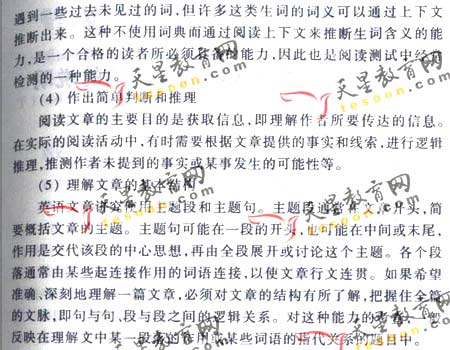 遇到一些过去未见过的词,但许多这类生词的词义可以通过上下文
推断出来。这种不使用词典而通过阅读上下文来推断生词含义的能
力,是一个合格的读者所必须具备的能力,因此也是阅读测试中经
检测的一种能力。
(4) 作出简单判断和推理
阅读文章的主要目的是获取信息,即理解作者所要传达的信息。
在实际的阅读活动中,有时需要根据文章提供的事实和线索,进行逻辑
推理,推测作者未提到的事实或某事发生的可能性等。
(5) 理解文章的基本结构
英语文章讲究使用主题段和主题句。主题段通常在文章开头,简
要概括文章的主题。主题句可能在一段的开头,也可能在中间或末尾,
作用是交代该段的中心思想,再由全段展开或讨论这个主题。各个段
落通常由某些起连接作用的词语连接,以使文章行文连贯。如果希望
准确、深刻地理解一篇文章,必须对文章的结构有所了解,把握住全篇
的文脉,即句与句、段与段之间的逻辑关系。对这种能力的考查
反映在理解文中某一段落的作用或某些词语的指代关系的题目中。
天星教育网
tesoon.com
天星教育网
tesoon.com
天星教育网
tesoon.com
天星教育网
tesoon.com